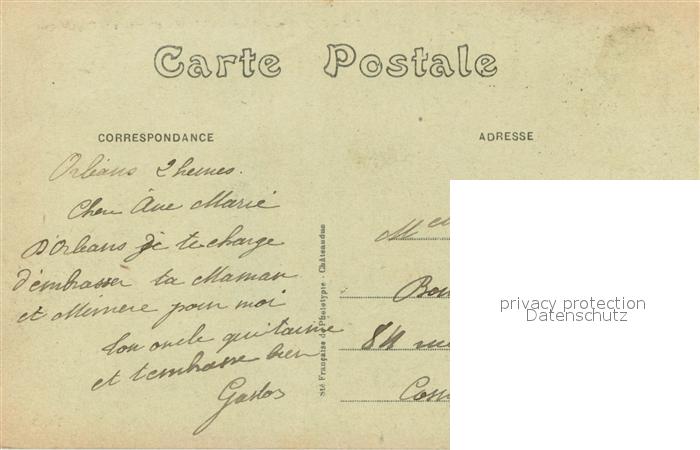 Carte Postale
CORRESPONDANCE
ADRESSE
Orléans 2 heures.
Chère Marie
D'Orléans je te charge
d'embrasser ta Maman
et Mémère pour moi
Ton oncle qui t'aime
et t'embrasse bien
Gaston
Sté Française de Phototypie - Châteaudun
84
privacy protection
Datenschutz